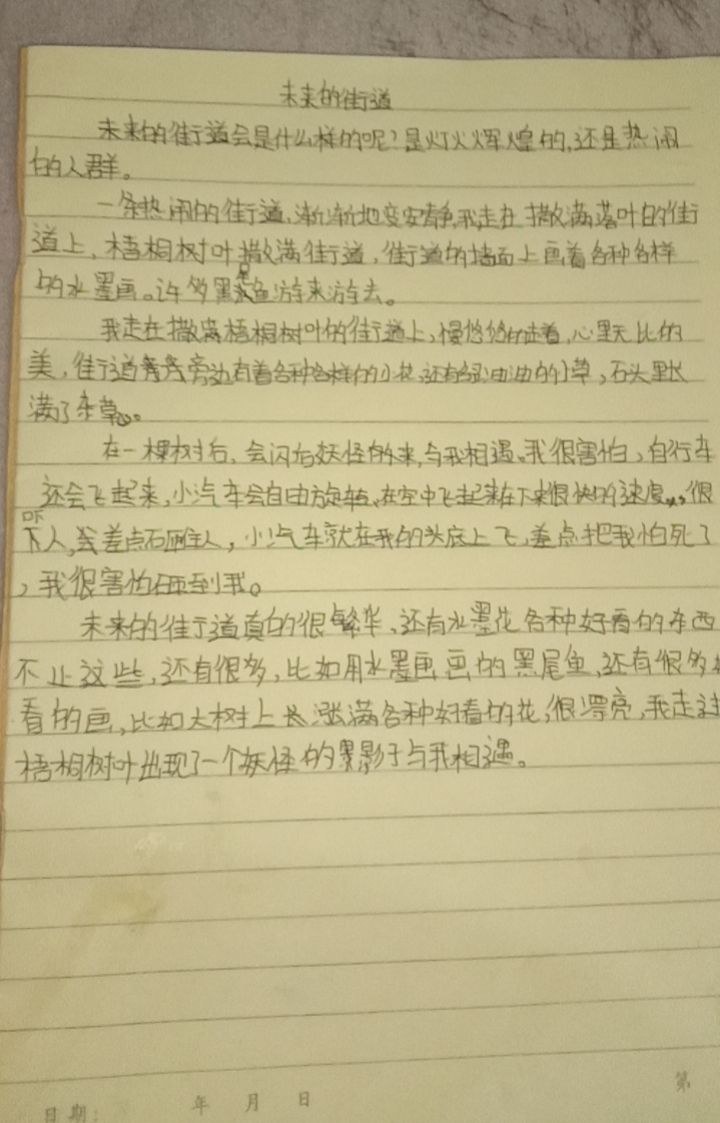 未来的街道
未来的街道会是什么样的呢？是灯火辉煌的，还是热闹
的人群。
一条热闹的街道，渐渐地变安静，我走在撒满落叶的街
道上，梧桐树叶撒满街道，街道的墙面上画着各种各样
的水墨画。许多黑尾鱼游来游去。
我走在撒满梧桐树叶的街道上，慢悠悠的走着，心里无比的
美，街道旁边有着各种各样的小花，还有绿油油的小草，石头里长
满了杂草。
在一棵树后，会闪后妖怪的来，与我相遇。我很害怕，自行车
还会飞起来，小汽车会自由旋转，在空中飞起来在下来很快的速度，很
吓人，差点砸住人，小汽车就在我的头底上飞，差点把我怕死了
，我很害怕砸到我。
未来的街道真的很繁华，还有水墨花各种好看的东西
不止这些，还有很多，比如用水墨画画的黑尾鱼，还有很多
看的画，比如大树上长涨满各种好看的花，很漂亮，我走过
梧桐树叶出现了一个妖怪的黑影子与我相遇。
第
日期： 年 月 日